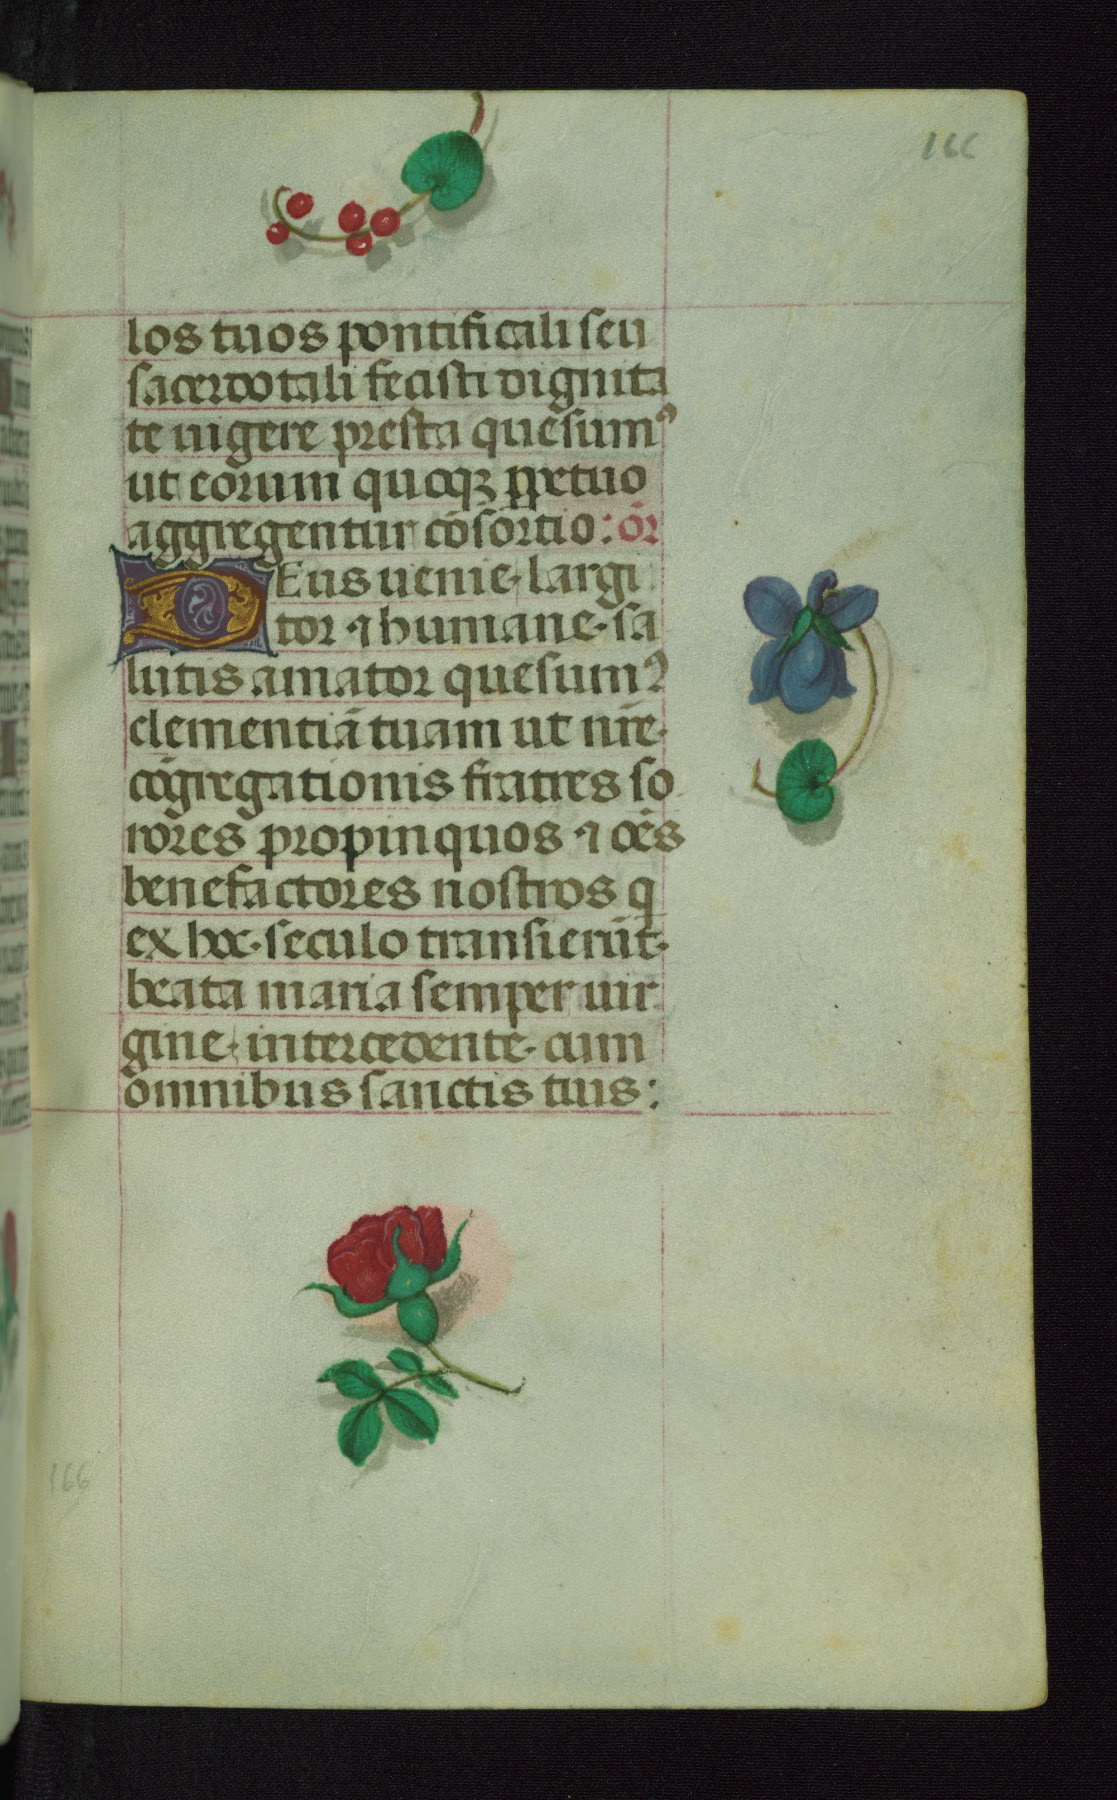 166
los tuos pontificali seu
sacerdotali fecisti dignita
te uigere presta quesumꝰ
ut eorum quoqꝫ ꝑpetuo
aggregentur cōsortio: or̄
DEus uenie largi
tor ⁊ humane sa
lutis amator quesumꝰ
clementiā tuam ut nr̄e
cōgregationis fratres so
rores propinquos ⁊ oēs
benefactores nostros q
ex hoc seculo transierūt
beata maria semper uir
gine intercedente cum
omnibus sanctis tuis:
166